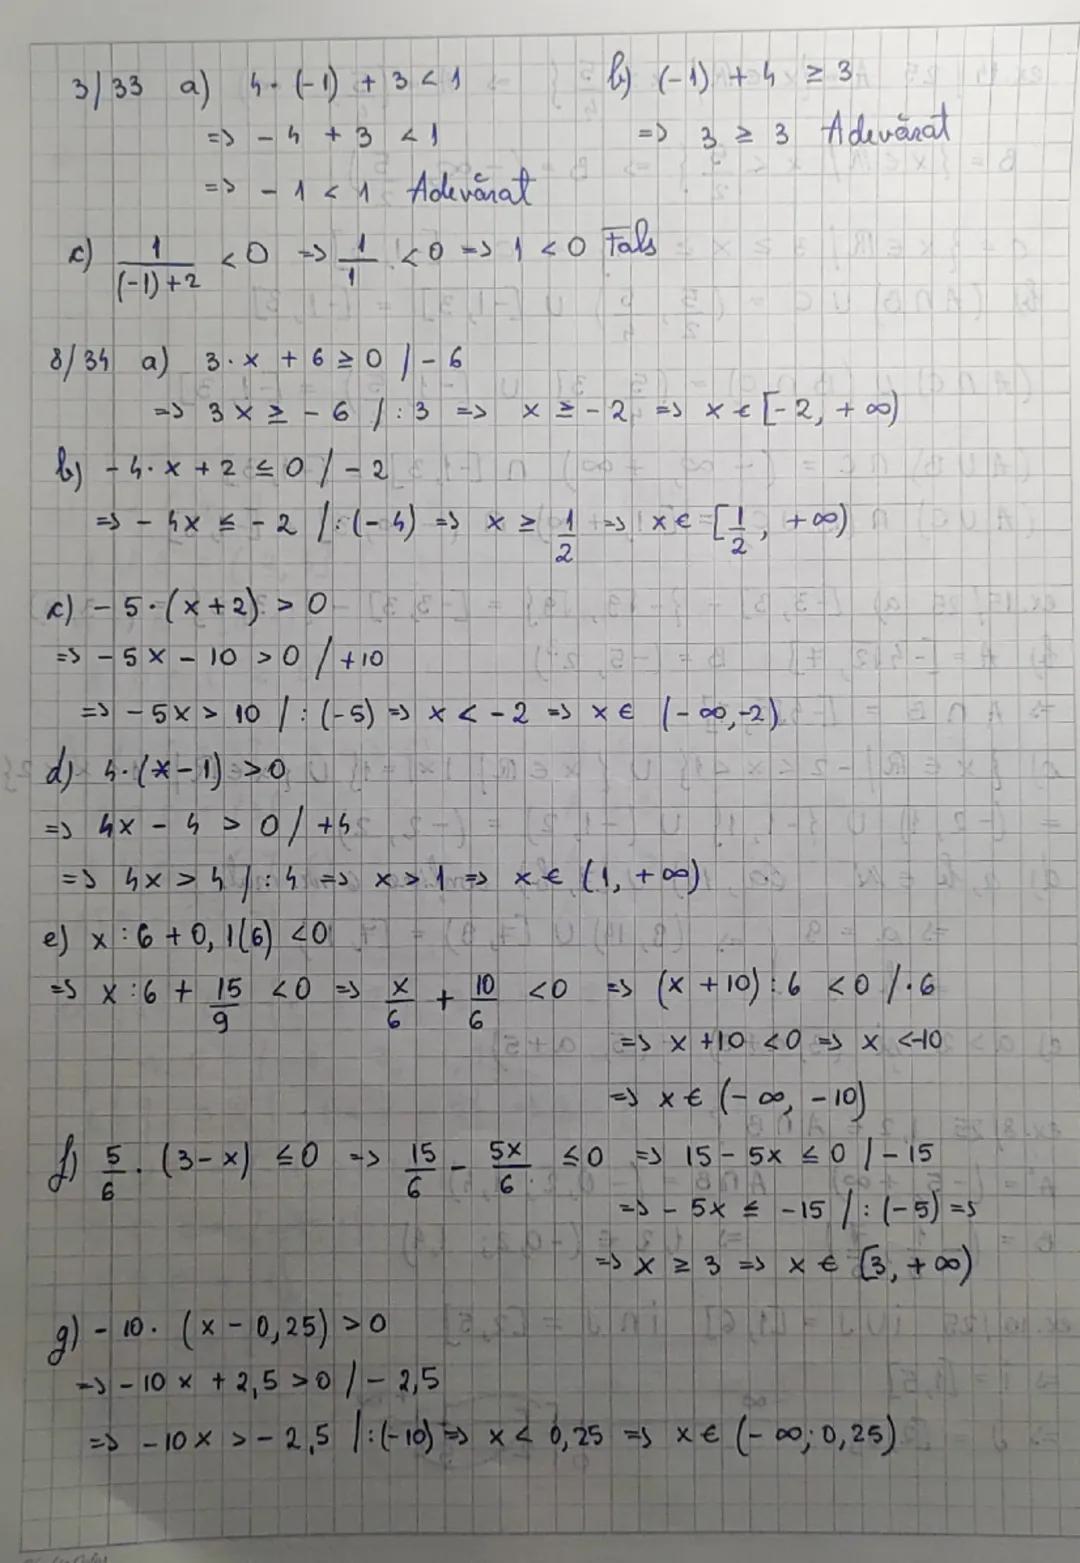 3/33 a) 4·(-1) + 3 < 1 b) (-1) + 4 ≥ 3
=> -4 + 3 < 1 => 3 ≥ 3 Adevărat
=> -1 < 1 Adevărat
c) 1/((-1)+2) < 0 => 1/1 < 0 => 1 < 0 Fals
8/34 a) 3·x + 6 ≥ 0 / -6
=> 3x ≥ -6 / :3 => x ≥ -2 => x ∈ [-2, +∞)
b) -4·x + 2 ≤ 0 / -2
=> -4x ≤ -2 / :(-4) => x ≥ 1/2 => x ∈ [1/2, +∞)
c) -5·(x+2) > 0
=> -5x - 10 > 0 / +10
=> -5x > 10 / :(-5) => x < -2 => x ∈ (-∞, -2)
d) 4·(x-1) > 0
=> 4x - 4 > 0 / +4
=> 4x > 4 / :4 => x > 1 => x ∈ (1, +∞)
e) x:6 + 0,1(6) < 0
=> x:6 + 15/9 < 0 => x/6 + 10/6 < 0 => (x+10):6 < 0 / ·6
=> x + 10 < 0 => x < -10
=> x ∈ (-∞, -10)
f) 5/6 · (3-x) ≤ 0 => 15/6 - 5x/6 ≤ 0 => 15 - 5x ≤ 0 / -15
=> -5x ≤ -15 / :(-5) =>
=> x ≥ 3 => x ∈ [3, +∞)
g) -10·(x - 0,25) > 0
=> -10x + 2,5 > 0 / -2,5
=> -10x > -2,5 / :(-10) => x < 0,25 => x ∈ (-∞; 0,25)